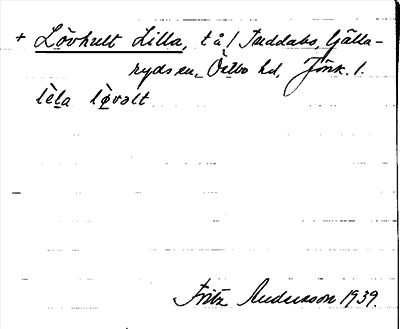 + Lövhult Lilla, tå/ Tuddabo, Gälla-
ryds sn, Östbo hd, Jönk. l.
lèla lø̀vəlt
Fritz Andersson 1939.